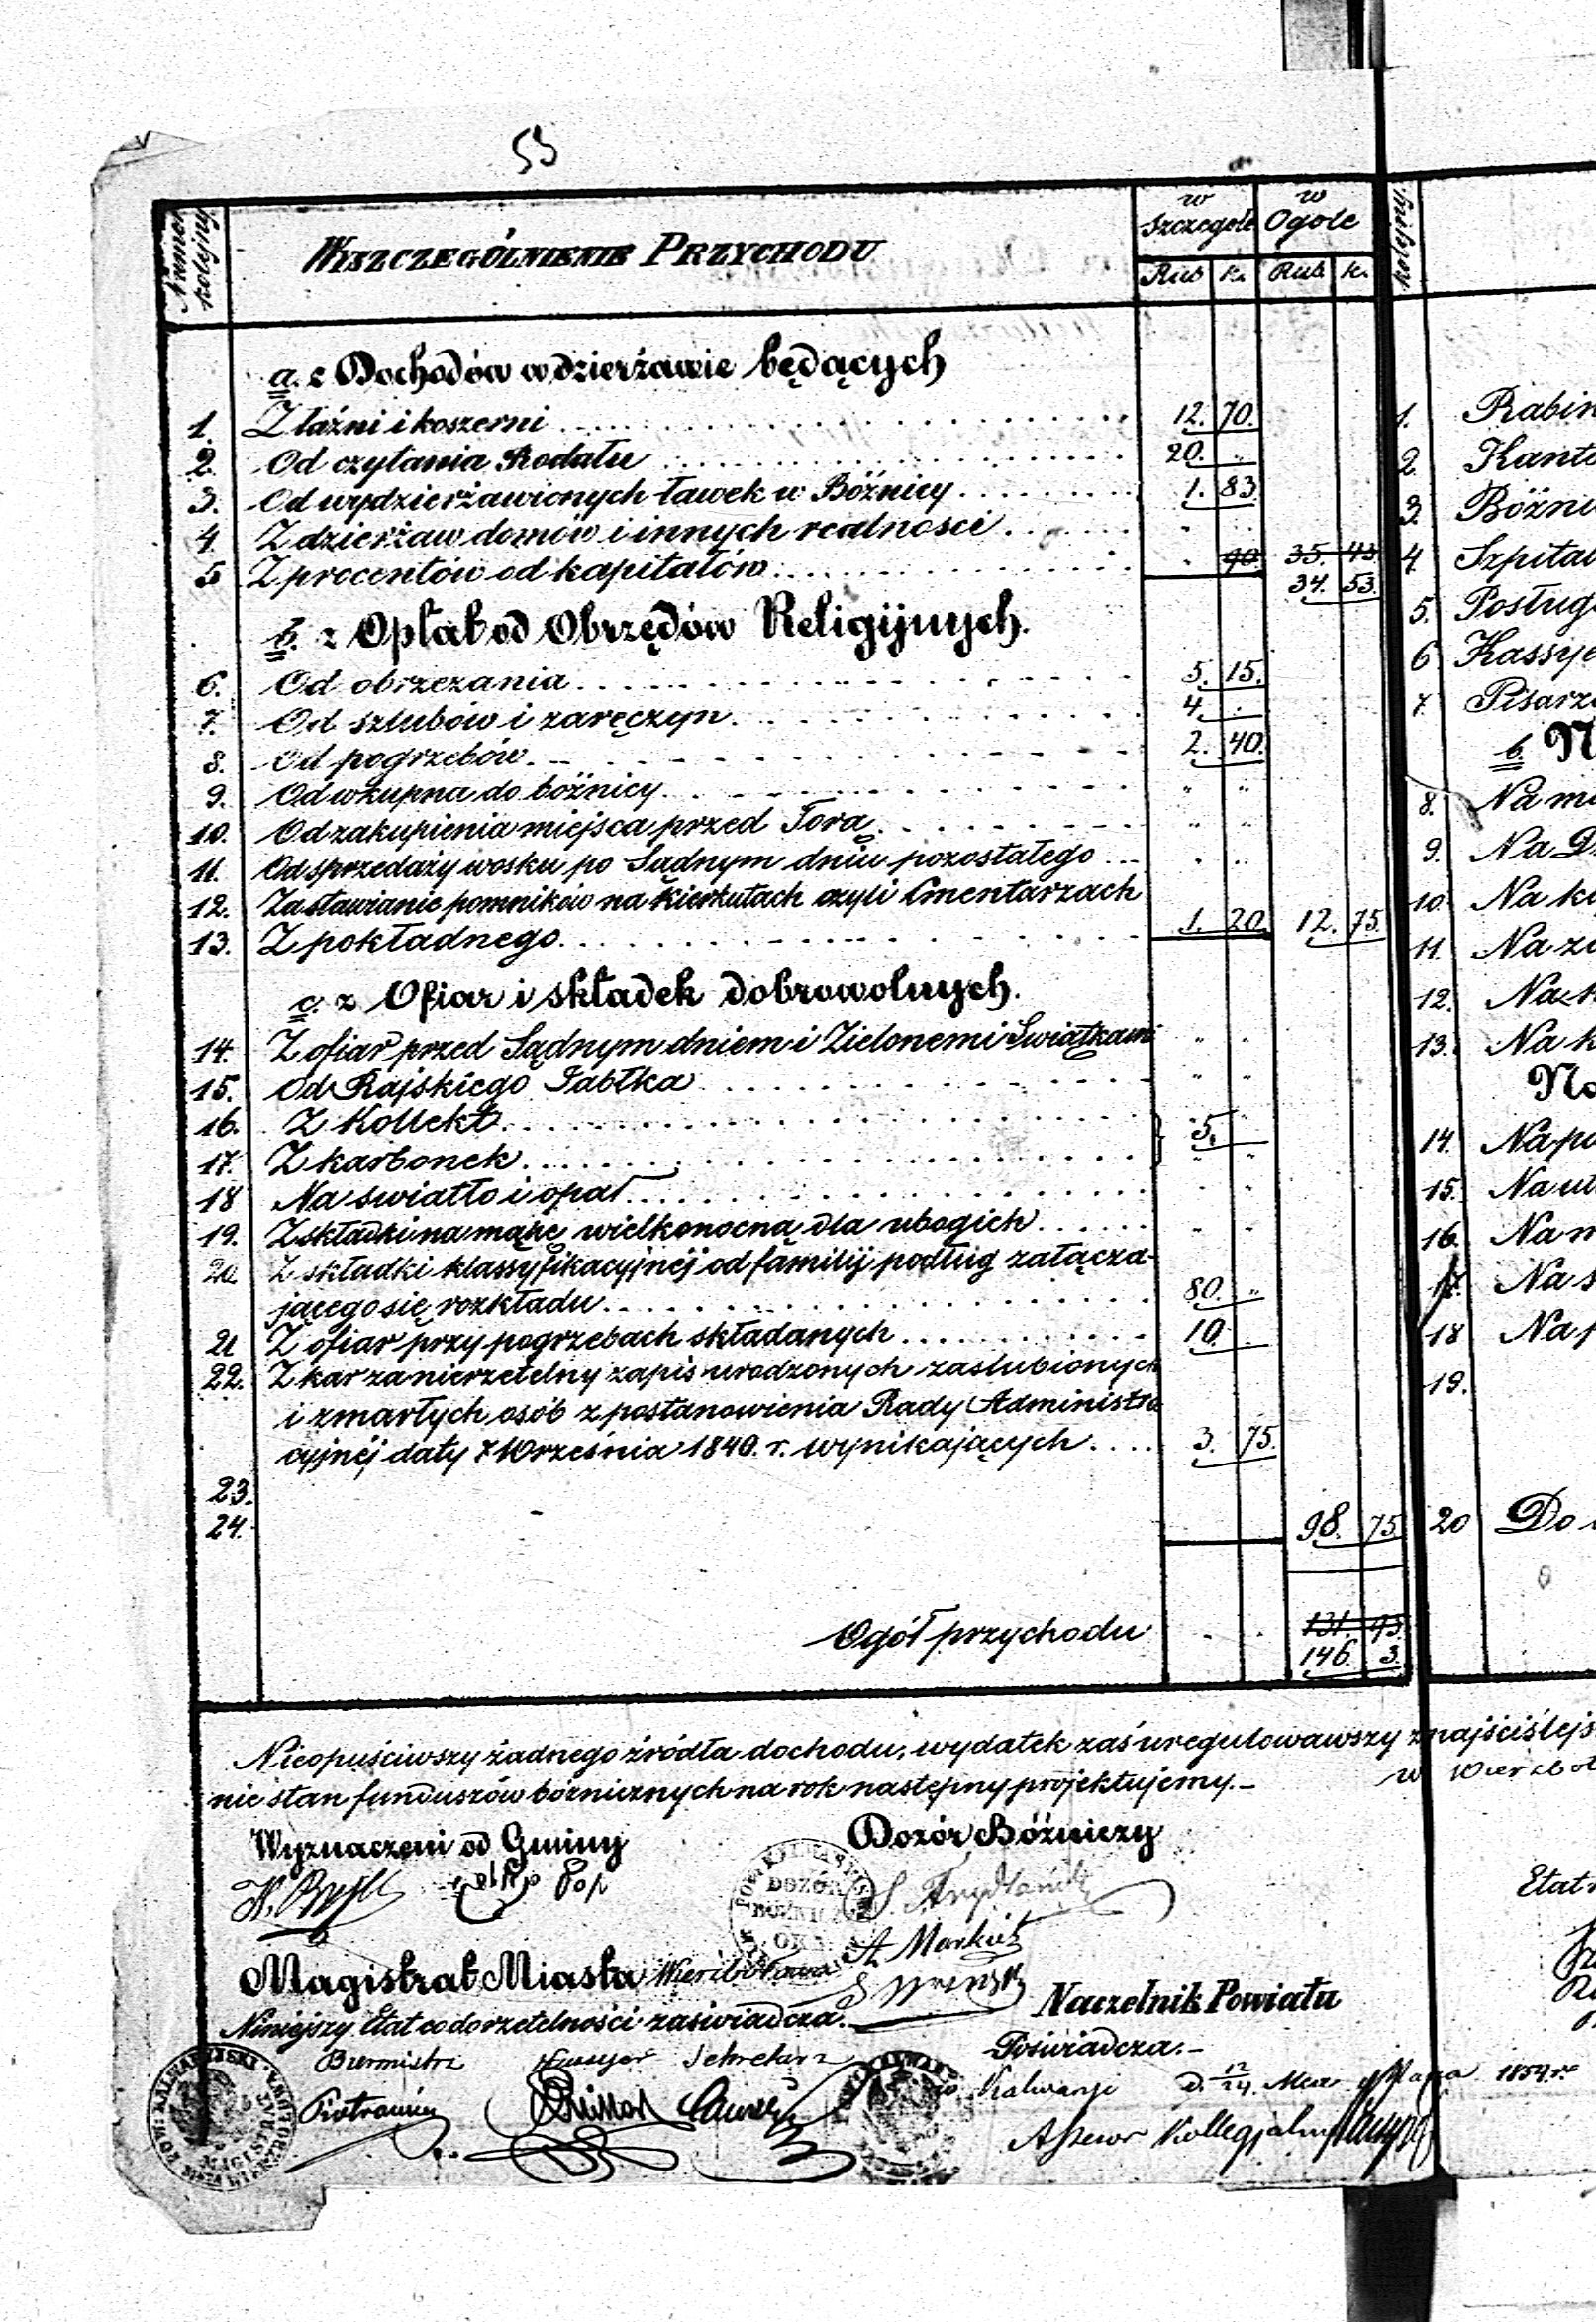 53
Numer kolejny
WYSZCZEGÓLNIENIE PRZYCHODU
w Szczegole
w Ogole
Rub k. Rub. k.
a. z Dochodów w dzierżawie będących
1. Z łaźni i koszerni 12. 70.
2. Od czytania Rodału 20. "
3. Od wydzierżawionych ławek w Bóżnicy 1. 83
4. Z dzierżaw domów i innych realnosci " "
5 Z procentów od kapitałów " 90. 35. 43
34. 53.
b. z Opłat od Obrzędów Religijnych.
6. Od obrzezania 5. 15.
7. Od szlubów i zaręczyn 4. "
8. Od pogrzebów 2. 40.
9. Od wkupna do bóżnicy " "
10. Od zakupienia miejsca przed Torą " "
11. Od sprzedaży wosku po Sądnym dniu pozostałego " "
12. Za stawianie pomników na Kierkutach czyli Cmentarzach
13. Z pokładnego 1. 20. 12. 75.
c. z Ofiar i składek dobrowolnych.
14. Z ofiar przed Sądnym dniem i Zielonemi Swiątkami " "
15. Od Rajskiego Jabłka " "
16. Z Kollekt 5. "
17. Z karbonek " "
18 Na swiatło i opał " "
19. Z składki na mąkę wielkonocną dla ubogich " "
20 Z składki klassyfikacyjnéj od familij podług załącza-
jącego się rozkładu 80. "
21 Z ofiar przy pogrzebach składanych 10.
22. Z kar za nierzetelny zapis urodzonych zaslubionych
i zmarłych osób z postanowienia Rady Administra
cyjnéj daty 7 Września 1840. r. wynikających 3. 75.
23.
24. 98. 75.
Ogół przychodu 131. 93.
146. 3.
kolejny
1. Rabin
2. Kant
3. Bóżni
4. Szpital
5. Posług
6 Kassye
7. Pisarz
b. N
8. Na m
9. Na D
10. Na k
11. Na z
12. Na
13. Na k
Na
14. Na p
15. Na u
16. Na n
17. Na s
18 Na p
19.
20 Do
Nieopuściwszy żadnego źródła dochodu, wydatek zaś uregulowawszy z najściślejs
nie stan funduszów bóżnicznych na rok następny projektujemy.
w Wierzboł
Wyznaczeni od Gminy
Dozór Bóżniczy
DOZÓR
A. Markus
Magistrat Miasta Wierzbołowa
Niniejszy Etat co do rzetelności zaświadcza.
Naczelnik Powiatu
Poświadcza.
Burmistrz Sekretarz
w Kalwaryi D. 12/24. Maja 1854 r.
Assesor Kollegjalny
Etat